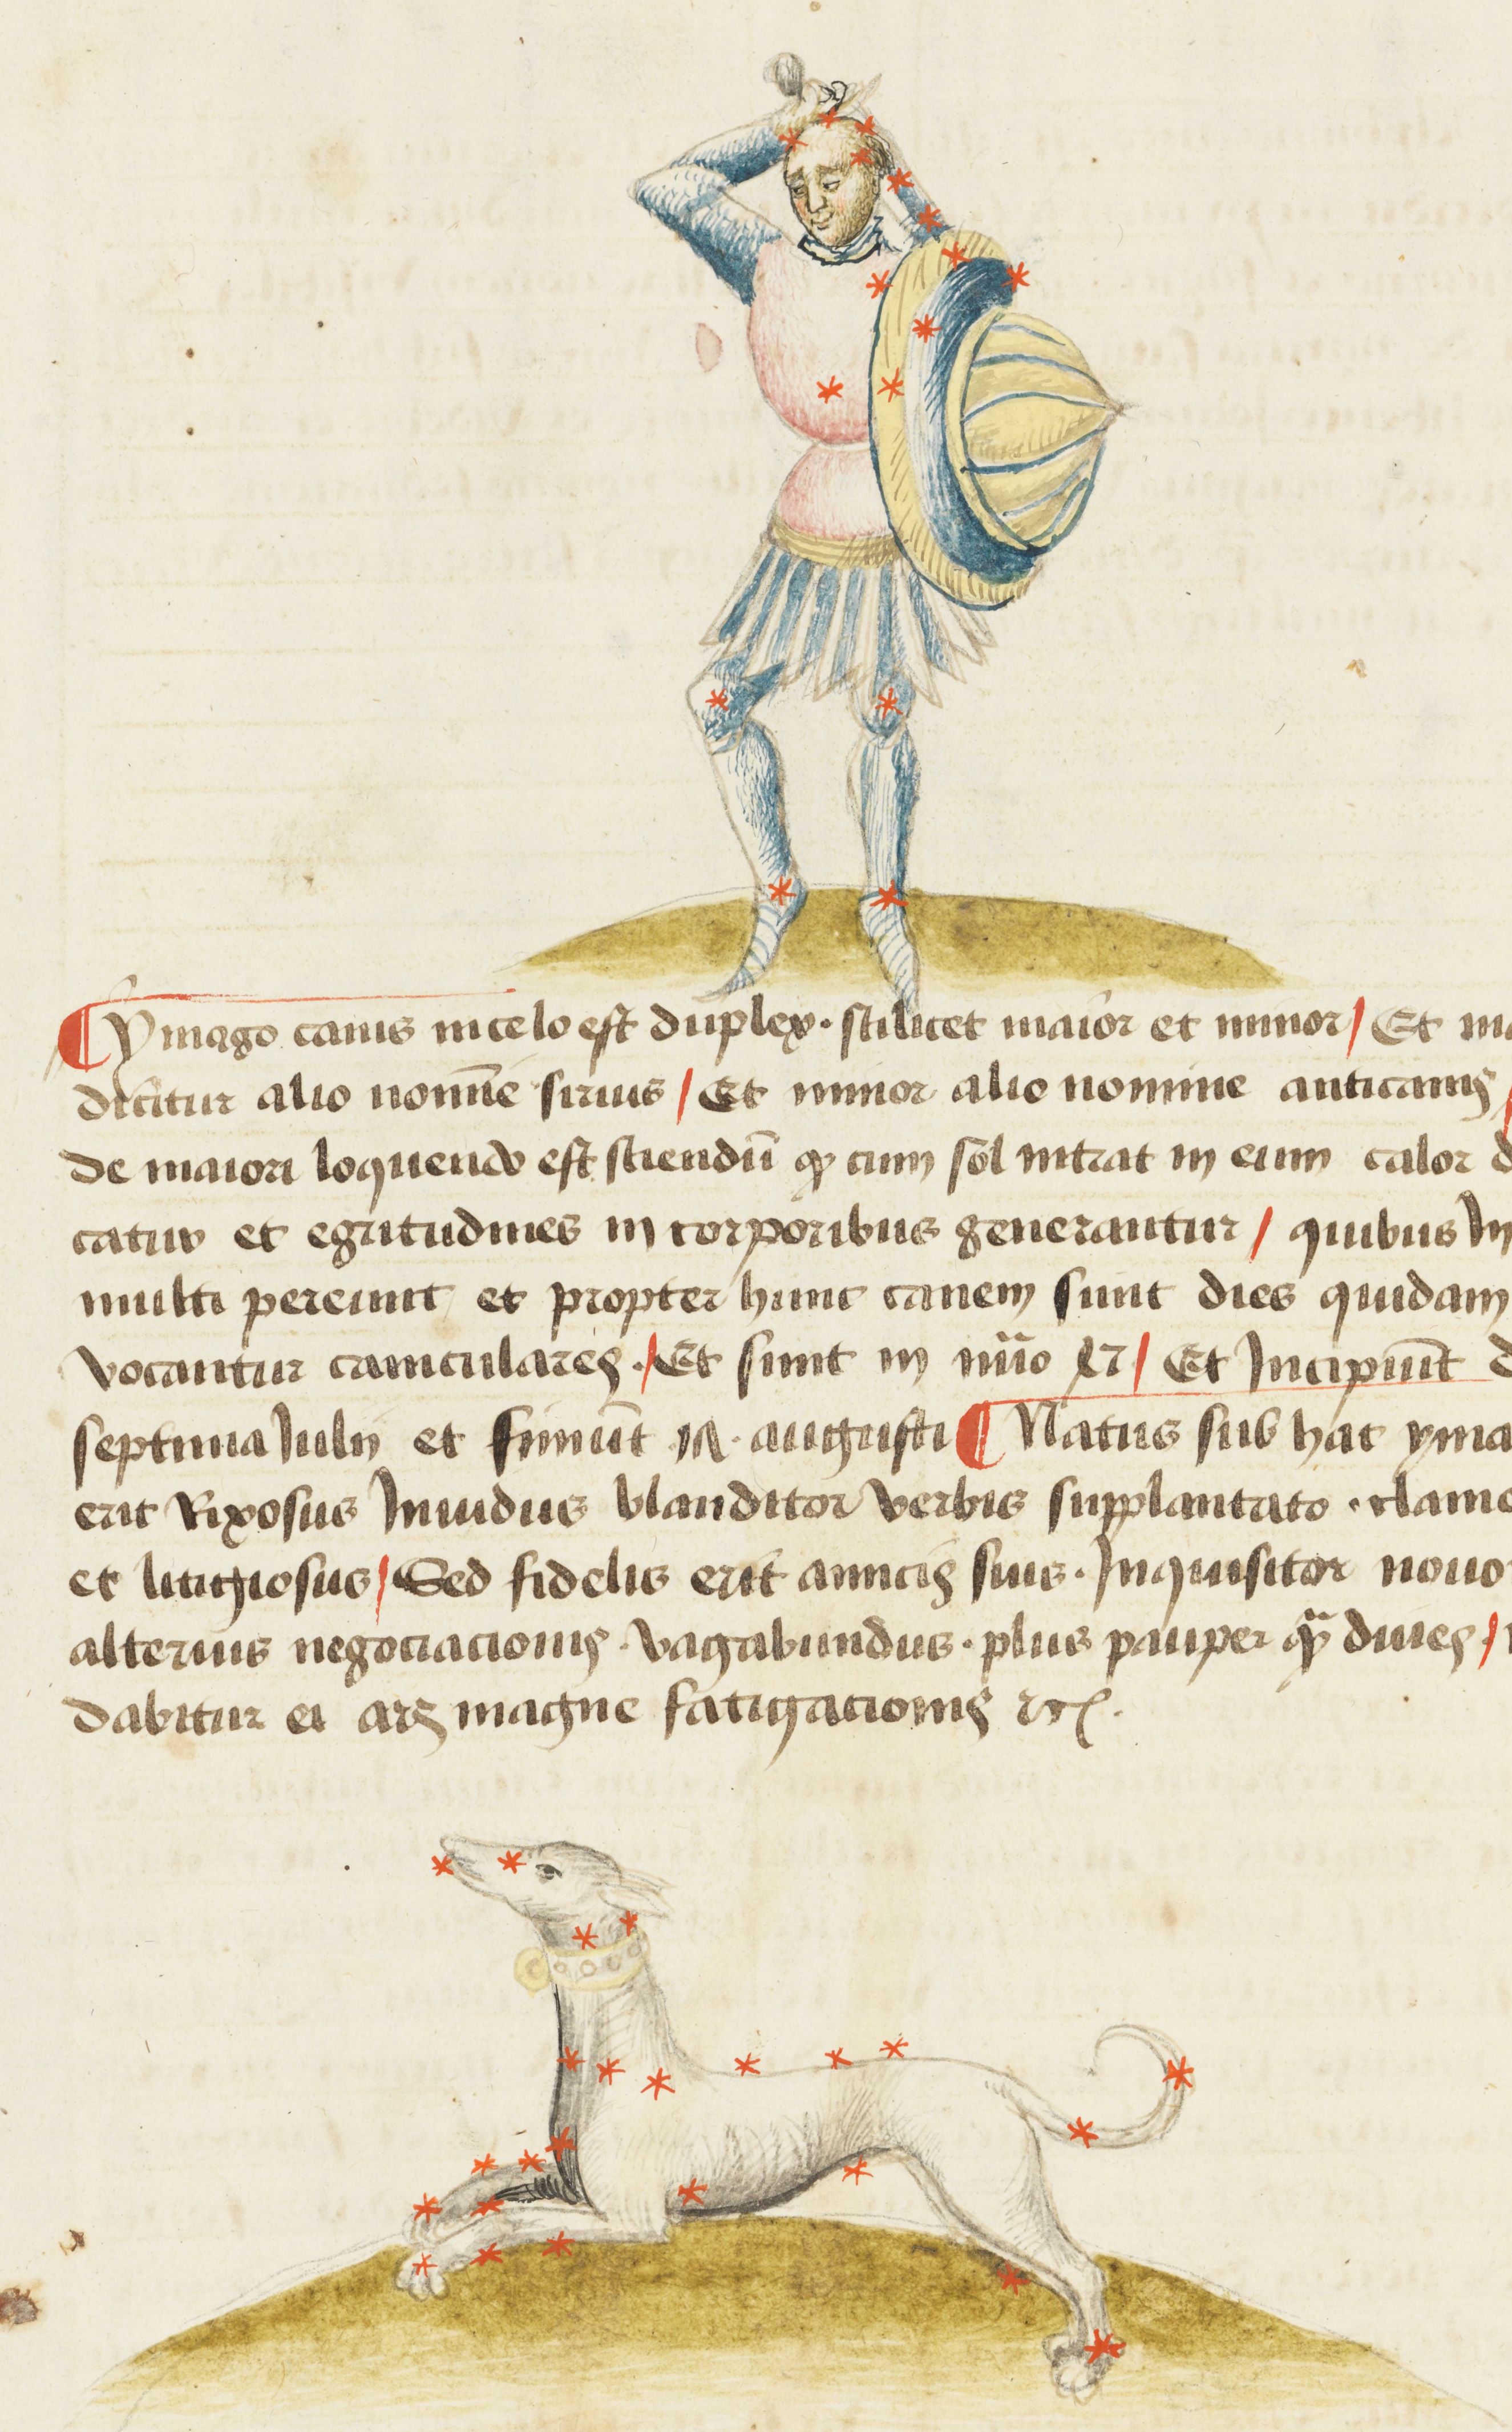 Ymago canis in celo est duplex · scilicet maior et minor / Et ma
dicitur alio nom̄ne sirius / Et minor alio nomine anticanis /
de maiori loquendo est sciendū qͥ cum sol intrat in eum calor d
catur et egritudines in corporibus generantur / quibus In
multi pereunt et propter hunc canem sunt dies quidam
vocantur caniculares · / Et sunt in nūo / Et Incipiūt d
septima Iulii et finiūt · augusti Natus sub hac yma
erit Rixosus Inuidus blanditor verbis supplantato · clamo
et litigiosus / Sed fidelis erit amicis suis · Inquisitor nouo
alterius negociacionis · vagabundus · plus pauper qᷓ diues /
dabitur ei ars magne fatigacionis